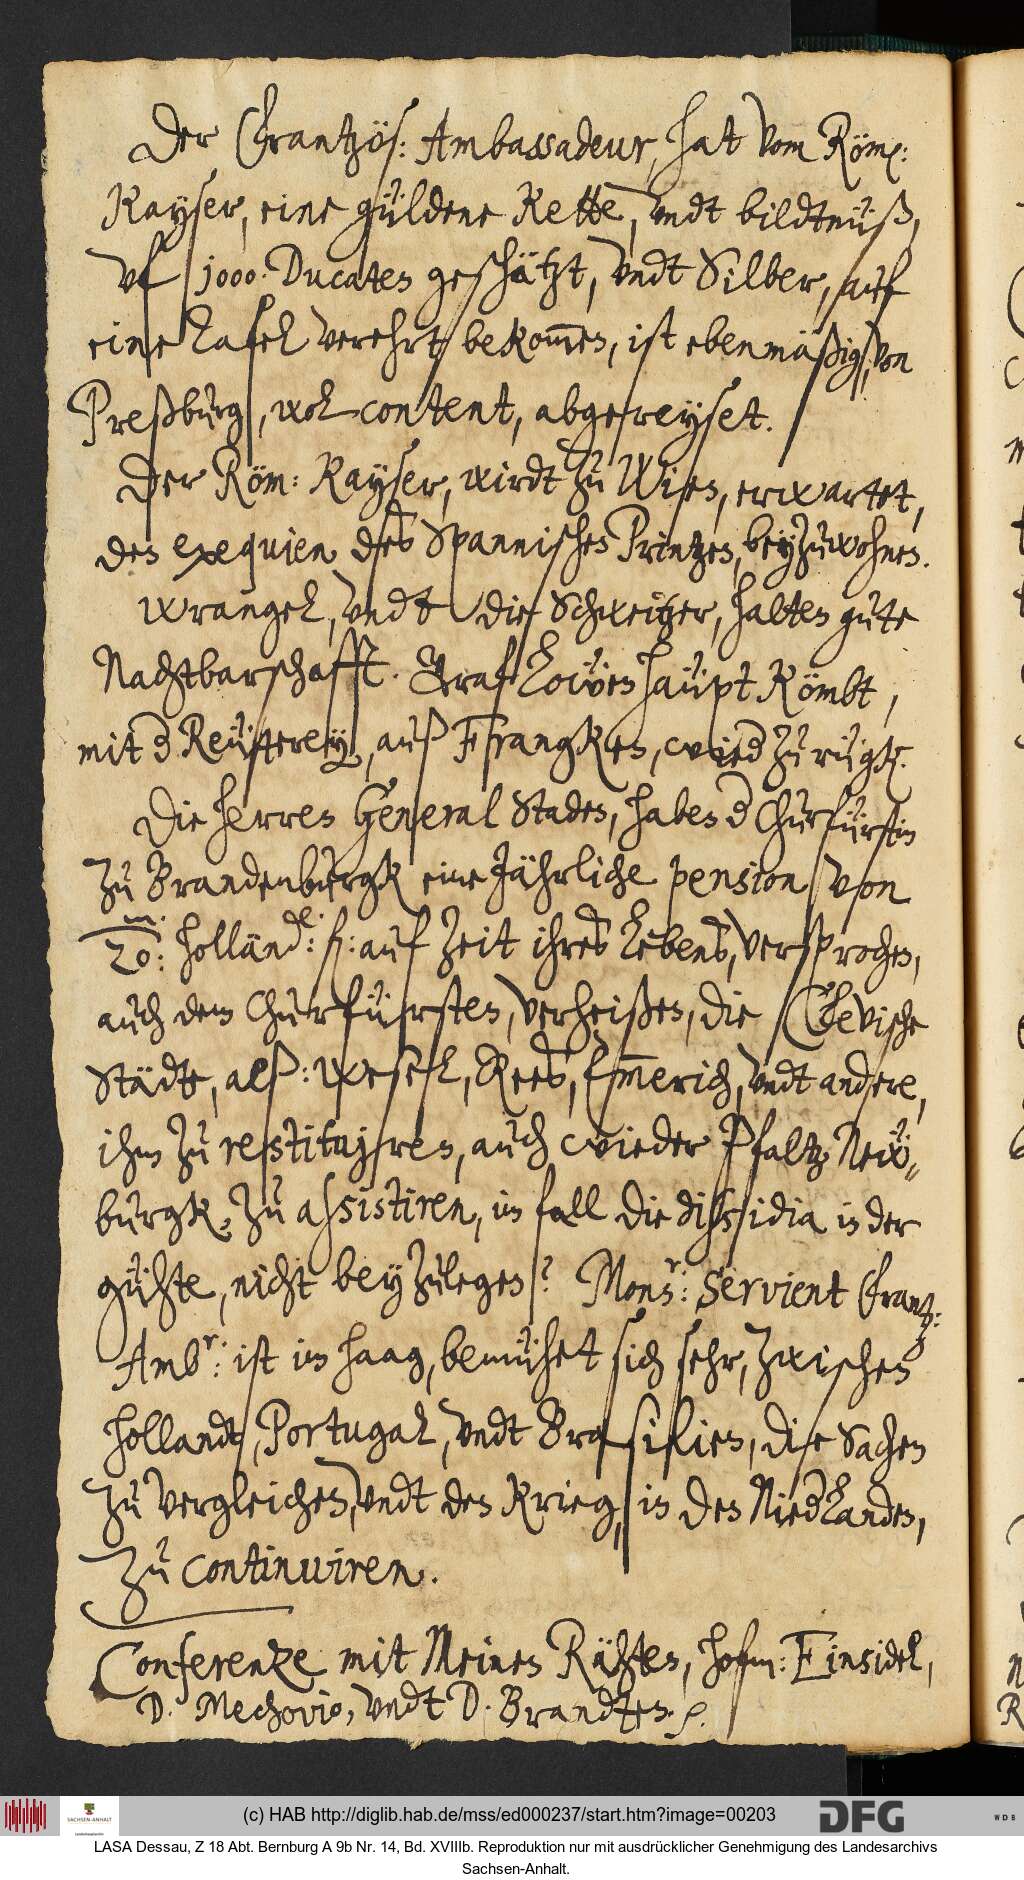 Der Frantzös: Ambassadeur, hat vom Röm:
Kayser, eine güldene Kette, undt bildtnüß,
uf 1000. Ducaten geschätzt, undt Silber, auf
eine Tafel verehrt bekom̅en, ist ebenmäßig, von
Preßburg, wol content, abgereyset.
Der Röm: Kayser, wirdt zu Wien, erwartet,
den exequien des Spannischen Printzen, beyzuwohnen.
Wrangel, undt die Schweitzer, halten gute
Nachtbarschafft. Graf Löwenhaupt kömbt,
mit d Reütterey, auß Francken, wied zurügk.
Die herren General Staden, haben d Churfürstin
zu Brandenburgk eine Jährliche pension von
20: m. holländ.e: fl: auf Zeit ihres Lebens, versprochen,
auch dem Churfürsten, verheißen, die Clevische
Städte, alß: Wesel, Rees, Em̅erich, undt andere,
ihm zu restituiren, auch wieder Pfaltz Neü„
burgk, zu assistiren, im fall die dissidia in der
gühte, nicht beyzulegen? Mons.r: Servient Frantz:
Amb.r: ist im Haag, bemühet sich sehr, zwischen
Hollandt, Portugal, undt Brasilien, die Sachen
zu vergleichen, undt den Krieg, in den Niedlanden,
zu continuiren.
Conferentze mit Meinen Rähten, Hofm: Einsidel,
D. Mechovio, undt D. Brandten. p.
(c) HAB http://diglib.hab.de/mss/ed000237/start.htm?image=00203
SACHSEN-ANHALT
DFG
WDB
LASA Dessau, Z 18 Abt. Bernburg A 9b Nr. 14, Bd. XVIIIb. Reproduktion nur mit ausdrücklicher Genehmigung des Landesarchivs
Sachsen-Anhalt.